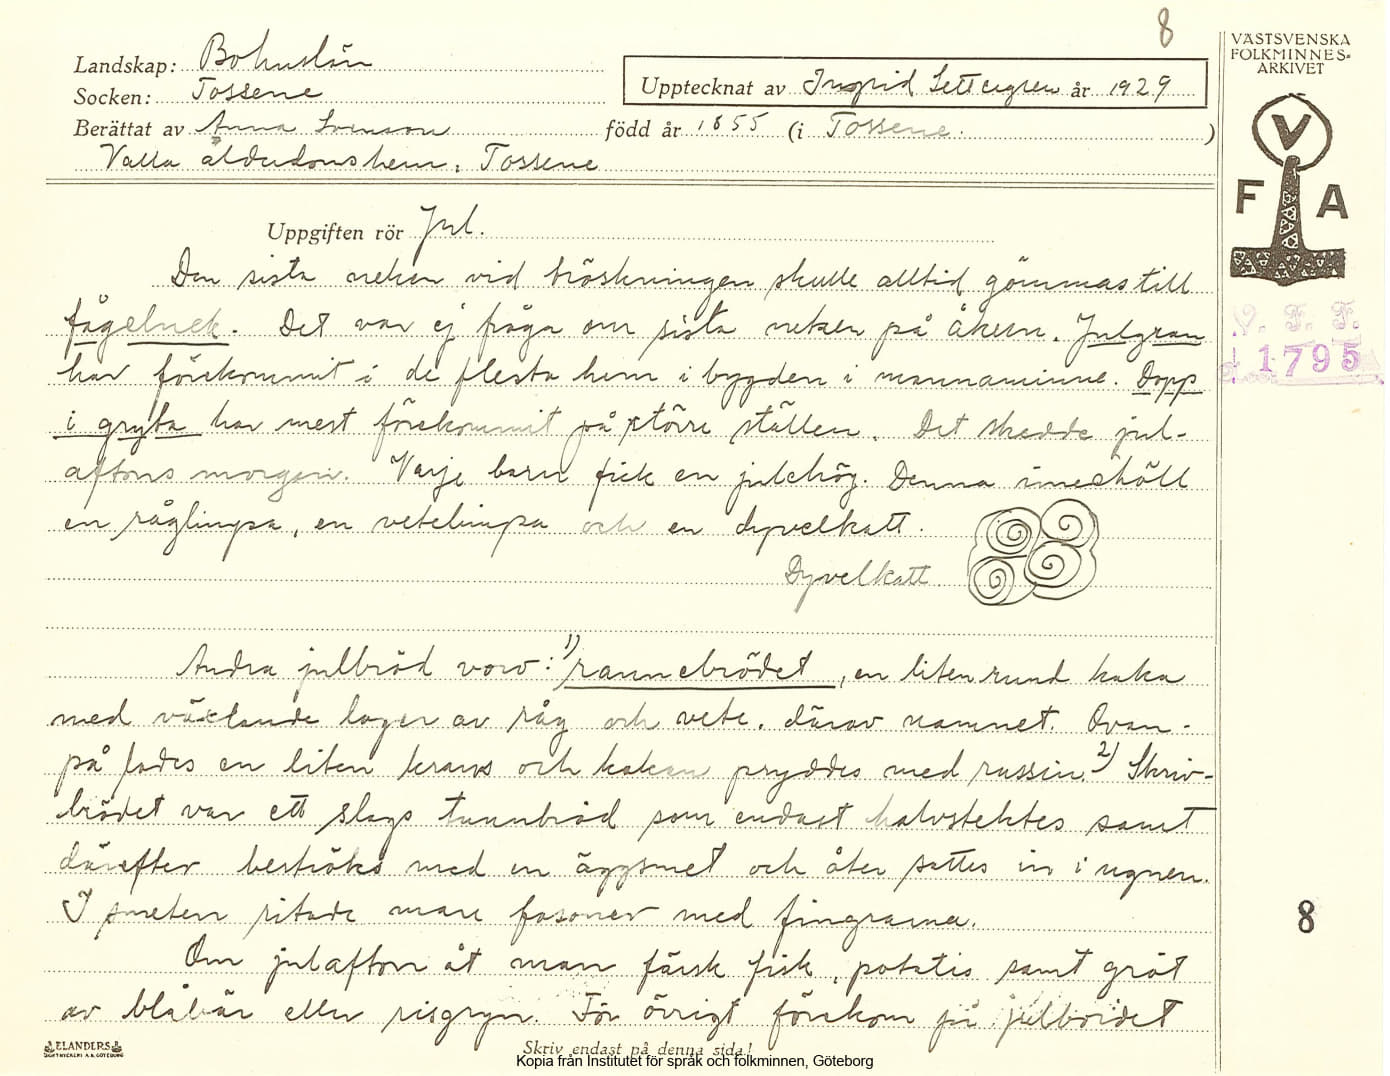 8
VÄSTSVENSKA
FOLKMINNES-
ARKIVET
Landskap: Bohuslän
Upptecknat av Ingrid Settergren år 1929
Socken: Tossene
Berättat av Anna Svenson född år 1855 (i Tossene. )
Valla ålderdomshem, Tossene
V
F A
Uppgiften rör Jul.
Den sista neken vid tröskningen skulle alltid gömmas till
fågelnek. Det var ej fråga om sista neken på åkern. Julgran
har förekommit i de flesta hem i bygden i mannaminne. Dopp
i gryta har mest förekommit på större ställen. Det skedde jul-
aftons morgon. Varje barn fick en julehög. Denna innehöll
en råglimpa, en vetelimpa och en dyvelkatt.
Dyvelkatt.
V. F. F.
1795
Andra julbröd voro: 1) rannebrödet, en liten rund kaka
med växlande lager av råg och vete, därav namnet. Ovan-
på lades en liten krans och kakan pryddes med russin. 2) Skriv-
brödet var ett slags tunnbröd som endast halvstektes samt
därefter beströks med en äggsmet och åter sattes in i ugnen.
I smeten ritade man fasoner med fingrarna.
8
Om julafton åt man färsk fisk, potatis samt gröt
av blåbär eller risgryn. För övrigt förekom på julbordet
ELANDERS
GÖTEBORG
Skriv endast på denna sida!
Kopia från Institutet för språk och folkminnen, Göteborg